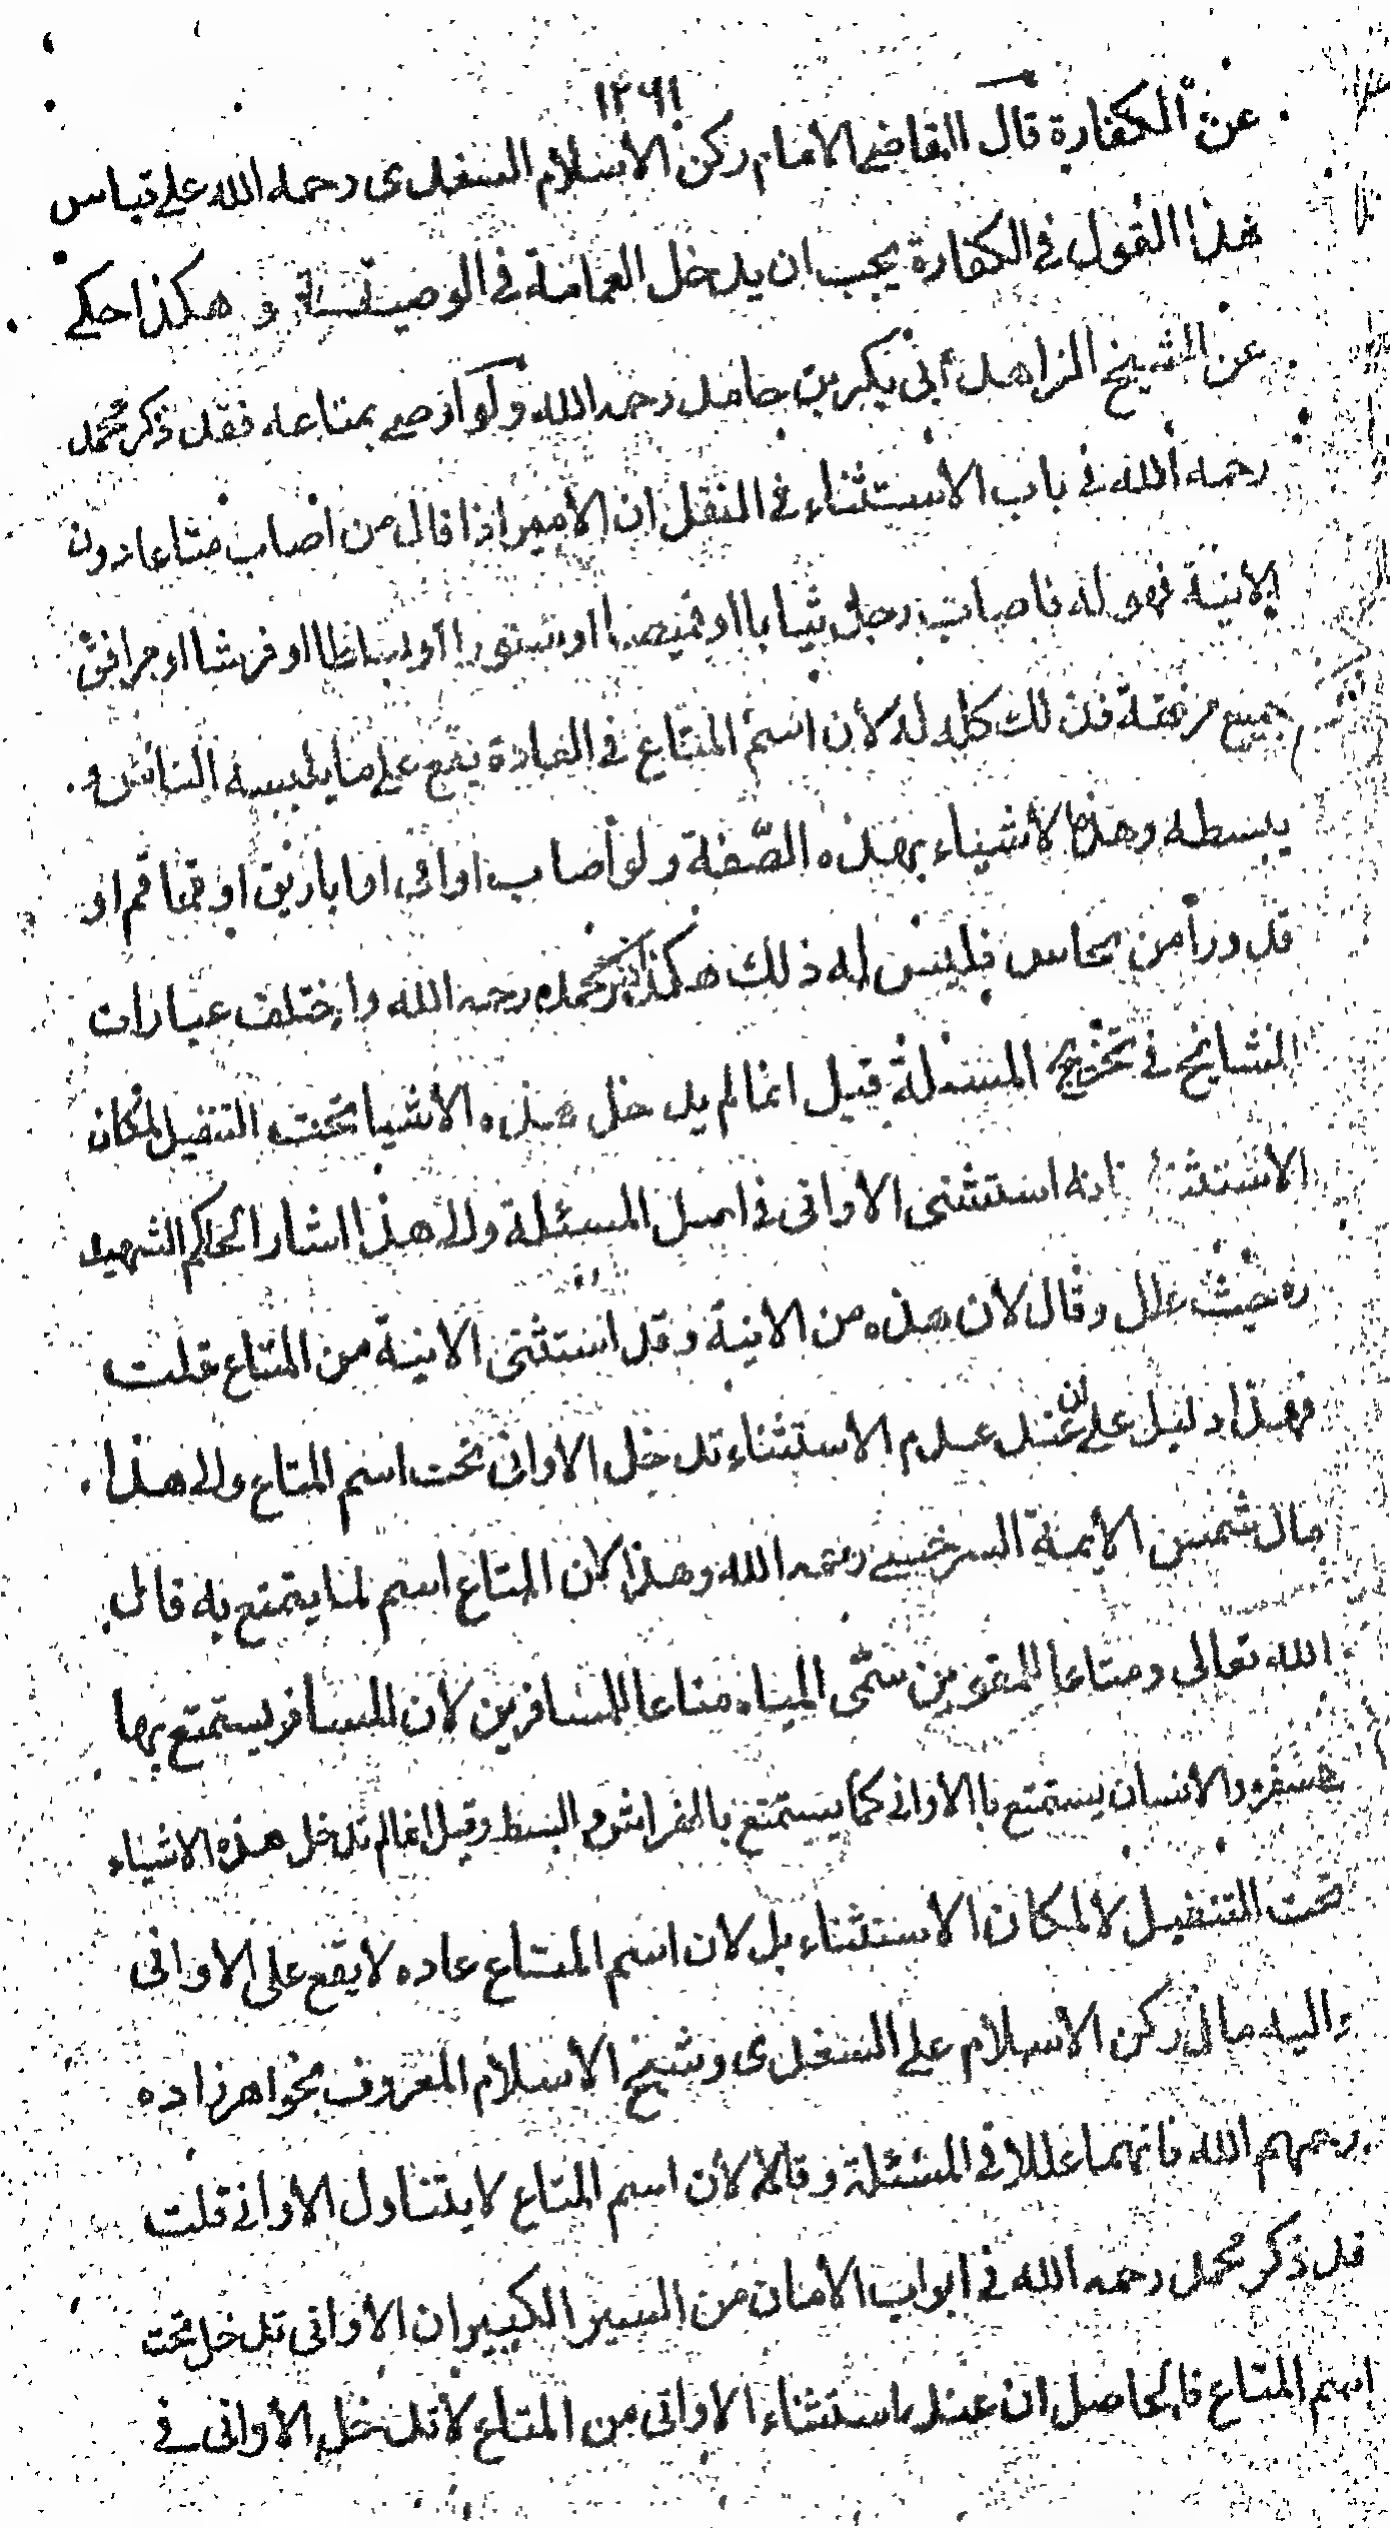 ١٢٩١
عن الكفارة قال القاضي الامام ركن الاسلام السغدى رحمه الله على قياس
هذا القول فى الكفارة يجب ان يدخل العمامة فى الوصية و هكذا حكى
عن الشيخ الزاهد أبى بكر بن حامد رحمه الله ولو اوصى بمتاعه فقد ذكر محمد
رحمه الله فى باب الاستثناء فى النفل ان الأمير اذا قال من اصاب متاعا دون
الآنية فهو له فاصاب رجل ثيابا او قميصا او ستورا او بساطا او فرشا او مرافق
جميع مرفقة فذلك كله له لأن اسم المتاع فى العادة يقع على ما يلبسه الناس و
يبسطه وهذه الأشياء بهذه الصفة ولو أصاب اوانى او اباريق او قماقم او
قدورا من نحاس فليس له ذلك هكذا ذكر محمد رحمه الله واختلف عبارات
المشايخ فى تخريج المسئلة قيل انما لم يدخل هذه الاشيا تحت التنفيل لمكان
الاستثنا نه استثنى الاوانى فى اصل المسئلة والى هذا اشار الحاكم الشهيد
ره حيث علل وقال لان هذه من الانية وقد استثنى الانية من المتاع قلت
فهذا دليل على ان عند عدم الاستثناء تدخل الاوانى تحت اسم المتاع والى هذا
مال شمس الأيمة السرخسى رحمه الله وهذا لان المتاع اسم لما يتمتع به قال
الله تعالى ومتاعا للمقوين سمّى المياه متاعا للمسافرين لأن المسافر يستمتع بها
سفره والأنسان يستمتع با الاوانى كما يستمتع با الفراش و البسط وقيل انما لم تدخل هذه الاشياء
تحت التنفيل لا لمكان الاستثناء بل لان اسم المتاع عاده لا يقع على الاوانى
واليه مال ركن الاسلام على السغدى وشيخ الاسلام المعروف بخواهرزاده
رحمهم الله فانهما عللا فى المسئلة وقالا لأن اسم المتاع لا يتناول الاوانى قلت
قد ذكر محمد رحمه الله فى ابواب الأمان من السير الكبير ان الأوانى تدخل تحت
اسم المتاع فالحاصل ان عند استثناء الاوانى من المتاع لا تدخل الأوانى فى